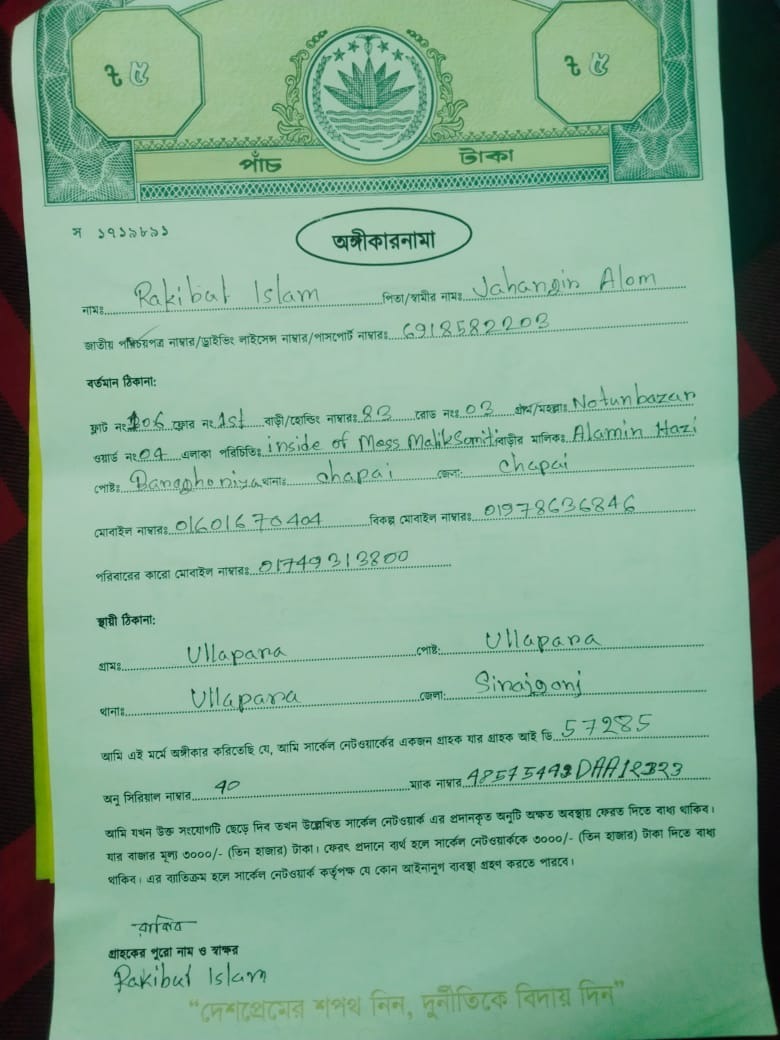 ৳ ৫ ৳ ৫
পাঁচ টাকা
স ১৭১৯৮৯১
অঙ্গীকারনামা
নামঃ Rakibul Islam পিতা/স্বামীর নামঃ Jahangir Alom
জাতীয় পরিচয়পত্র নাম্বার/ড্রাইভিং লাইসেন্স নাম্বার/পাসপোর্ট নাম্বারঃ 6918582203
বর্তমান ঠিকানা:
ফ্লাট নং 106 ফ্লোর নং 1st বাড়ী/হোল্ডিং নাম্বারঃ 83 রোড নংঃ 03 গ্রাম/মহল্লাঃ Notunbazar
ওয়ার্ড নং 04 এলাকা পরিচিতিঃ inside of Mess Malik Somiti বাড়ীর মালিকঃ Alamin Hazi
পোষ্টঃ থানাঃ chapai জেলা: chapai
মোবাইল নাম্বারঃ 01601670404 বিকল্প মোবাইল নাম্বারঃ 01978636846
পরিবারের কারো মোবাইল নাম্বারঃ 01749313800
স্থায়ী ঠিকানা:
গ্রামঃ Ullapara পোষ্ট: Ullapara
থানাঃ Ullapara জেলা: Sirajgonj
আমি এই মর্মে অঙ্গীকার করিতেছি যে, আমি সার্কেল নেটওয়ার্কের একজন গ্রাহক যার গ্রাহক আই ডি 57285
অনু সিরিয়াল নাম্বার 40 ম্যাক নাম্বার
আমি যখন উক্ত সংযোগটি ছেড়ে দিব তখন উল্লেখিত সার্কেল নেটওয়ার্ক এর প্রদানকৃত অনুটি অক্ষত অবস্থায় ফেরত দিতে বাধ্য থাকিব।
যার বাজার মূল্য ৩০০০/- (তিন হাজার) টাকা। ফেরৎ প্রদানে ব্যর্থ হলে সার্কেল নেটওয়ার্ককে ৩০০০/- (তিন হাজার) টাকা দিতে বাধ্য
থাকিব। এর ব্যতিক্রম হলে সার্কেল নেটওয়ার্ক কর্তৃপক্ষ যে কোন আইনানুগ ব্যবস্থা গ্রহণ করতে পারবে।
রাকিব
গ্রাহকের পুরো নাম ও স্বাক্ষর
Rakibul Islam
"দেশপ্রেমের শপথ নিন, দুর্নীতিকে বিদায় দিন"